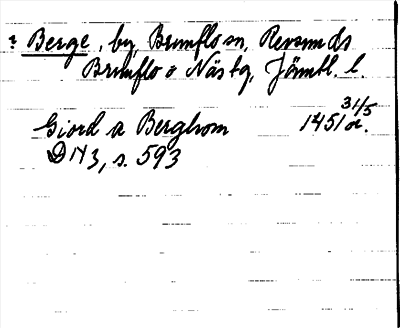 : Berge, by, Brunflo sn, Revsunds
Brunflo o Näs tg, Jämtl. l.
Giord a Berghom 1451 31/5 or.
DN 3, s. 593